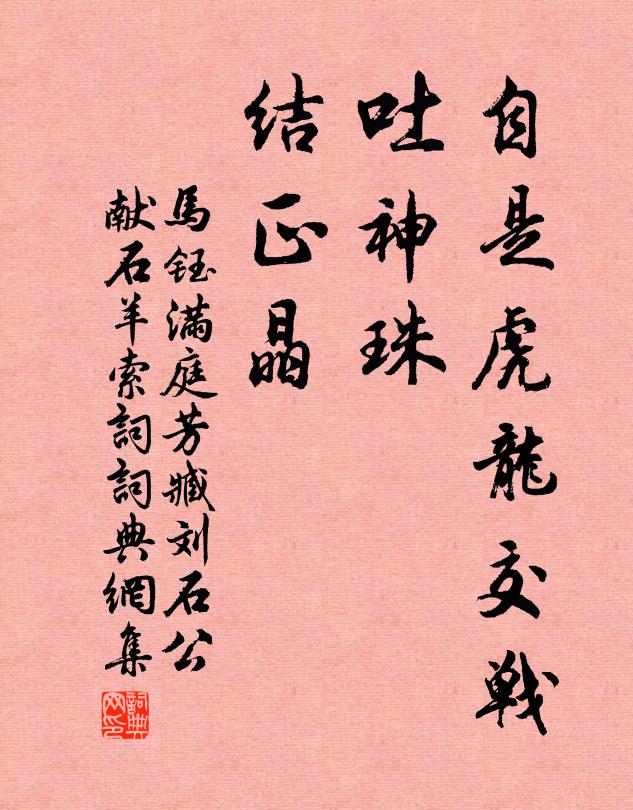 自是虎龍交戦
吐神珠
结正晶
馬鈺满庭芳臧刘石公
献石羊索詞詞典網集
詞典网印